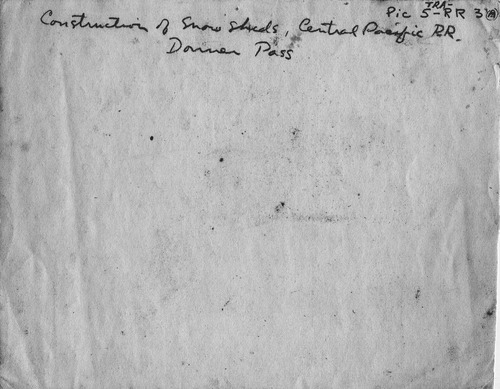 Pic 5-RR 3
TRA-
Construction of Snow Sheds, Central Pacific RR.
Donner Pass